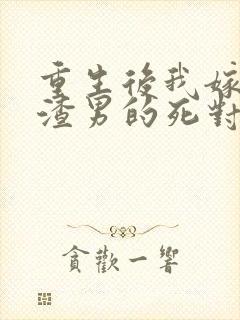 重生後我嫁
渣男的死對
貪歡一響